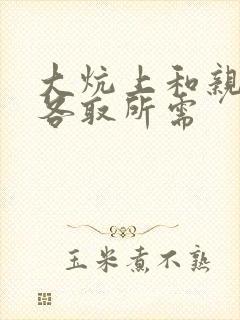 大炕上和親
各取所需
玉米煮不熟